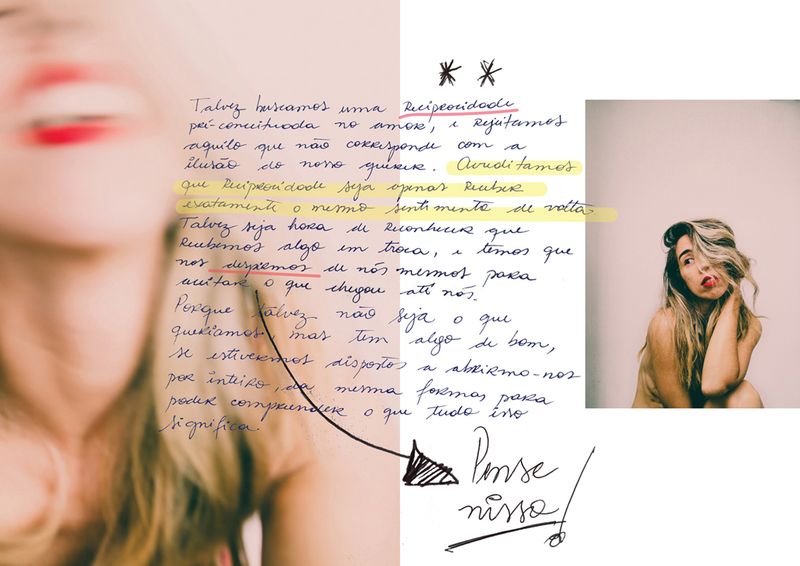 * *
Talvez buscamos uma Reciprocidade
pré-conceituada no amor, e rejeitamos
aquilo que não corresponde com a
ilusão do nosso querer. Acreditamos
que Reciprocidade seja apenas Receber
exatamente o mesmo sentimento de volta.
Talvez seja hora de Reconhecer que
Recebemos algo em troca, e temos que
nos despirmos de nós mesmos para
aceitar o que chegou até nós.
Porque talvez não seja o que
queríamos, mas tem algo de bom,
se estivermos dispostos a abrirmo-nos
por inteiro, da mesma formas para
poder compreender o que tudo isso
significa.
Pense
nisso!